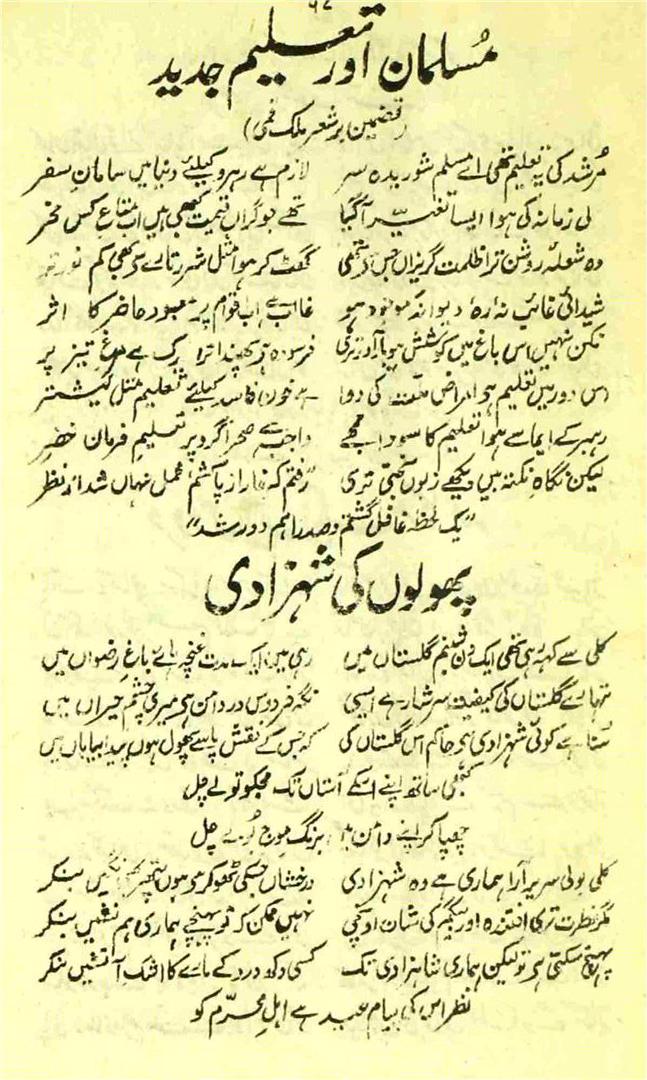 مُسلمان اور تعلیم جدید
(تضمین بر شعر ملک قمی)
مُرشد کی یہ تعلیم تھی اے مسلم شوریدہ سر لازم ہے رہرو کیلئے دنیا میں سامانِ سفر
لی زمانہ کی ہوا ایسا تغیّر آ گیا تھے جو گراں قیمت کبھی ہیں اب متاعِ کس مخر
وہ شعلۂ روشن ترا ظلمت گریزاں جس سے تھی گھٹ کر ہوا مثل شرر تارے سے بھی کم نور تر
شیدائی غائب نہ رہ دیوانۂ موجود ہو غالب ہے اب اقوام پر معبود حاضر کا اثر
ممکن نہیں اس باغ میں کوشش ہو بار آور تری فرسودہ ہے پھندا ترا زیرک ہے مرغِ تیز پر
اس دور میں تعلیم ہے امراض ملت کی دوا ہے خونِ فاسد کیلئے تعلیم مثل نیشتر
رہبر کے ایما سے ہوا تعلیم کا سودا مجھے واجب ہے صحرا گرد پر تعمیلِ فرمان خضر
لیکن نگاہِ نکتہ بیں دیکھے زبوں بختی تری ”رفتم کہ خار از پا کشم محمل نہاں شد از نظر
یک لحظہ غافل گشتم و صد سالہ راہم دور شد“
پھولوں کی شہزادی
کلی سے کہہ رہی تھی ایک دن شبنم گلستاں میں رہی میں ایک مدت غنچہ ہائے باغِ رضواں میں
تمہارے گلستاں کی کیفیت سرشار ہے ایسی نگہ فردوس در دامن ہے میری چشمِ حیراں میں
سُنا ہے کوئی شہزادی ہے حاکم اس گلستاں کی کہ جس کے نقش پا سے پھول ہوں پیدا بیاباں میں
کبھی ساتھ اپنے اسکے آستاں تک مجھکو تو لے چل
چھپا کر اپنے دامن میں برنگِ موجِ بُو لے چل
کلی بولی سریر آرا ہماری ہے وہ شہزادی درخشاں جسکی ٹھوکر سے ہوں پتھر بھی نگیں بنکر
مگر فطرت تری افتندہ اور بیگم کی شان اونچی نہیں ممکن کہ تو پہنچے ہماری ہم نشیں بنکر
پہنچ سکتی ہے تو لیکن ہماری شاہزادی تک کسی دکھ درد کے مارے کا اشک آتشیں بنکر
نظر اس کی پیام عید ہے اہلِ محرّم کو